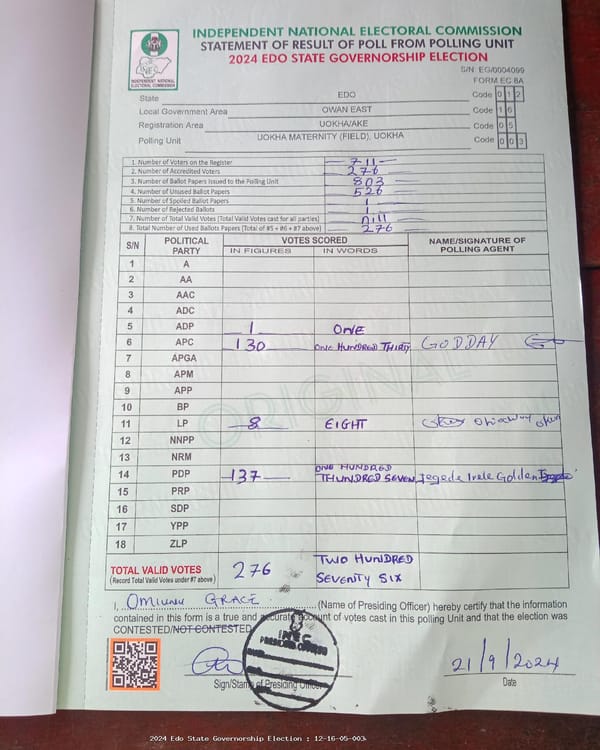 INDEPENDENT NATIONAL ELECTORAL COMMISSION
STATEMENT OF RESULT OF POLL FROM POLLING UNIT
2024 EDO STATE GOVERNORSHIP ELECTION
INDEPENDENT NATIONAL ELECTORAL COMMISSION
S/N EG/0004099
FORM EC 8A
State EDO Code 0 1 2
Local Government Area OWAN EAST Code 1 6
Registration Area UOKHA/AKE Code 0 5
Polling Unit UOKHA MATERNITY (FIELD), UOKHA Code 0 0 3
1. Number of Voters on the Register 711
2. Number of Accredited Voters 276
3. Number of Ballot Papers Issued to the Polling Unit 803
4. Number of Unused Ballot Papers 526
5. Number of Spoiled Ballot Papers 1
6. Number of Rejected Ballots 1
7. Number of Total Valid Votes (Total Valid Votes cast for all parties) nill
8. Total Number of Used Ballots Papers (Total of #5 + #6 + #7 above) 276
S/N POLITICAL PARTY VOTES SCORED NAME/SIGNATURE OF POLLING AGENT
IN FIGURES IN WORDS
1 A
2 AA
3 AAC
4 ADC
5 ADP 1 ONE
6 APC 130 ONE HUNDRED THIRTY GODDAY
7 APGA
8 APM
9 APP
10 BP
11 LP 8 EIGHT
12 NNPP
13 NRM
14 PDP 137 ONE HUNDRED THUNDRED SEVEN Jegede Irele Golden
15 PRP
16 SDP
17 YPP
18 ZLP
ORIGINAL
TOTAL VALID VOTES 276 TWO HUNDRED
(Record Total Valid Votes under #7 above) SEVENTY SIX
I, OMIUNU GRACE (Name of Presiding Officer) hereby certify that the information
contained in this form is a true and accurate account of votes cast in this polling Unit and that the election was
CONTESTED/NOT CONTESTED
INEC
PRESIDING OFFICER
21/9/2024
Sign/Stamp of Presiding Officer Date
2024 Edo State Governorship Election : 12-16-05-003